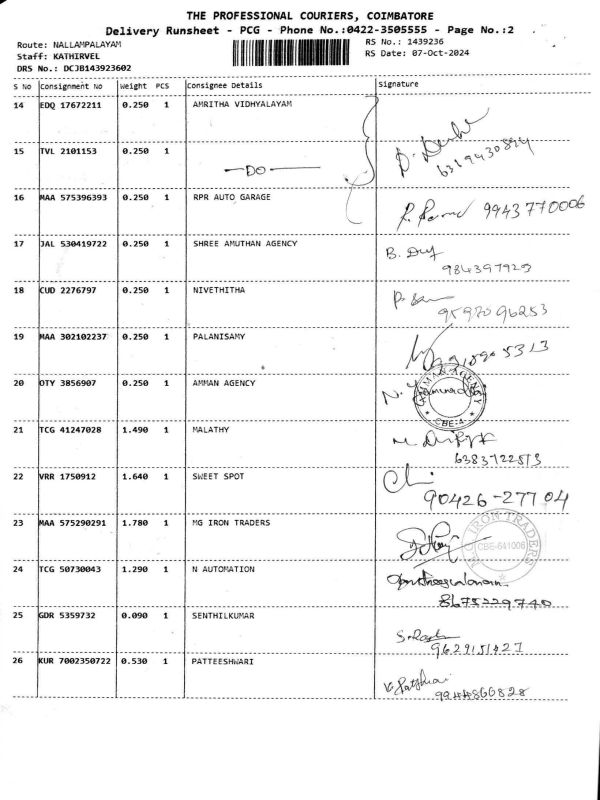 THE PROFESSIONAL COURIERS, COIMBATORE
Delivery Runsheet - PCG - Phone No.:0422-3505555 - Page No.:2
Route: NALLAMPALAYAM RS No.: 1439236
Staff: KATHIRVEL RS Date: 07-Oct-2024
DRS No.: DCJB143923602
S No Consignment No Weight PCS Consignee Details Signature
14 EDQ 17672211 0.250 1 AMRITHA VIDHYALAYAM
15 TVL 2101153 0.250 1
DO
16 MAA 575396393 0.250 1 RPR AUTO GARAGE
9943770006
17 JAL 530419722 0.250 1 SHREE AMUTHAN AGENCY
18 CUD 2276797 0.250 1 NIVETHITHA
19 MAA 302102237 0.250 1 PALANISAMY
20 OTY 3856907 0.250 1 AMMAN AGENCY
CBE-A
21 TCG 41247028 1.490 1 MALATHY
22 VRR 1750912 1.640 1 SWEET SPOT
90426-27704
23 MAA 575290291 1.780 1 MG IRON TRADERS
CBE-641006
24 TCG 50730043 1.290 1 N AUTOMATION
8675229740
25 GDR 5359732 0.090 1 SENTHILKUMAR
9629151427
26 KUR 7002350722 0.530 1 PATTEESHWARI
9944866828